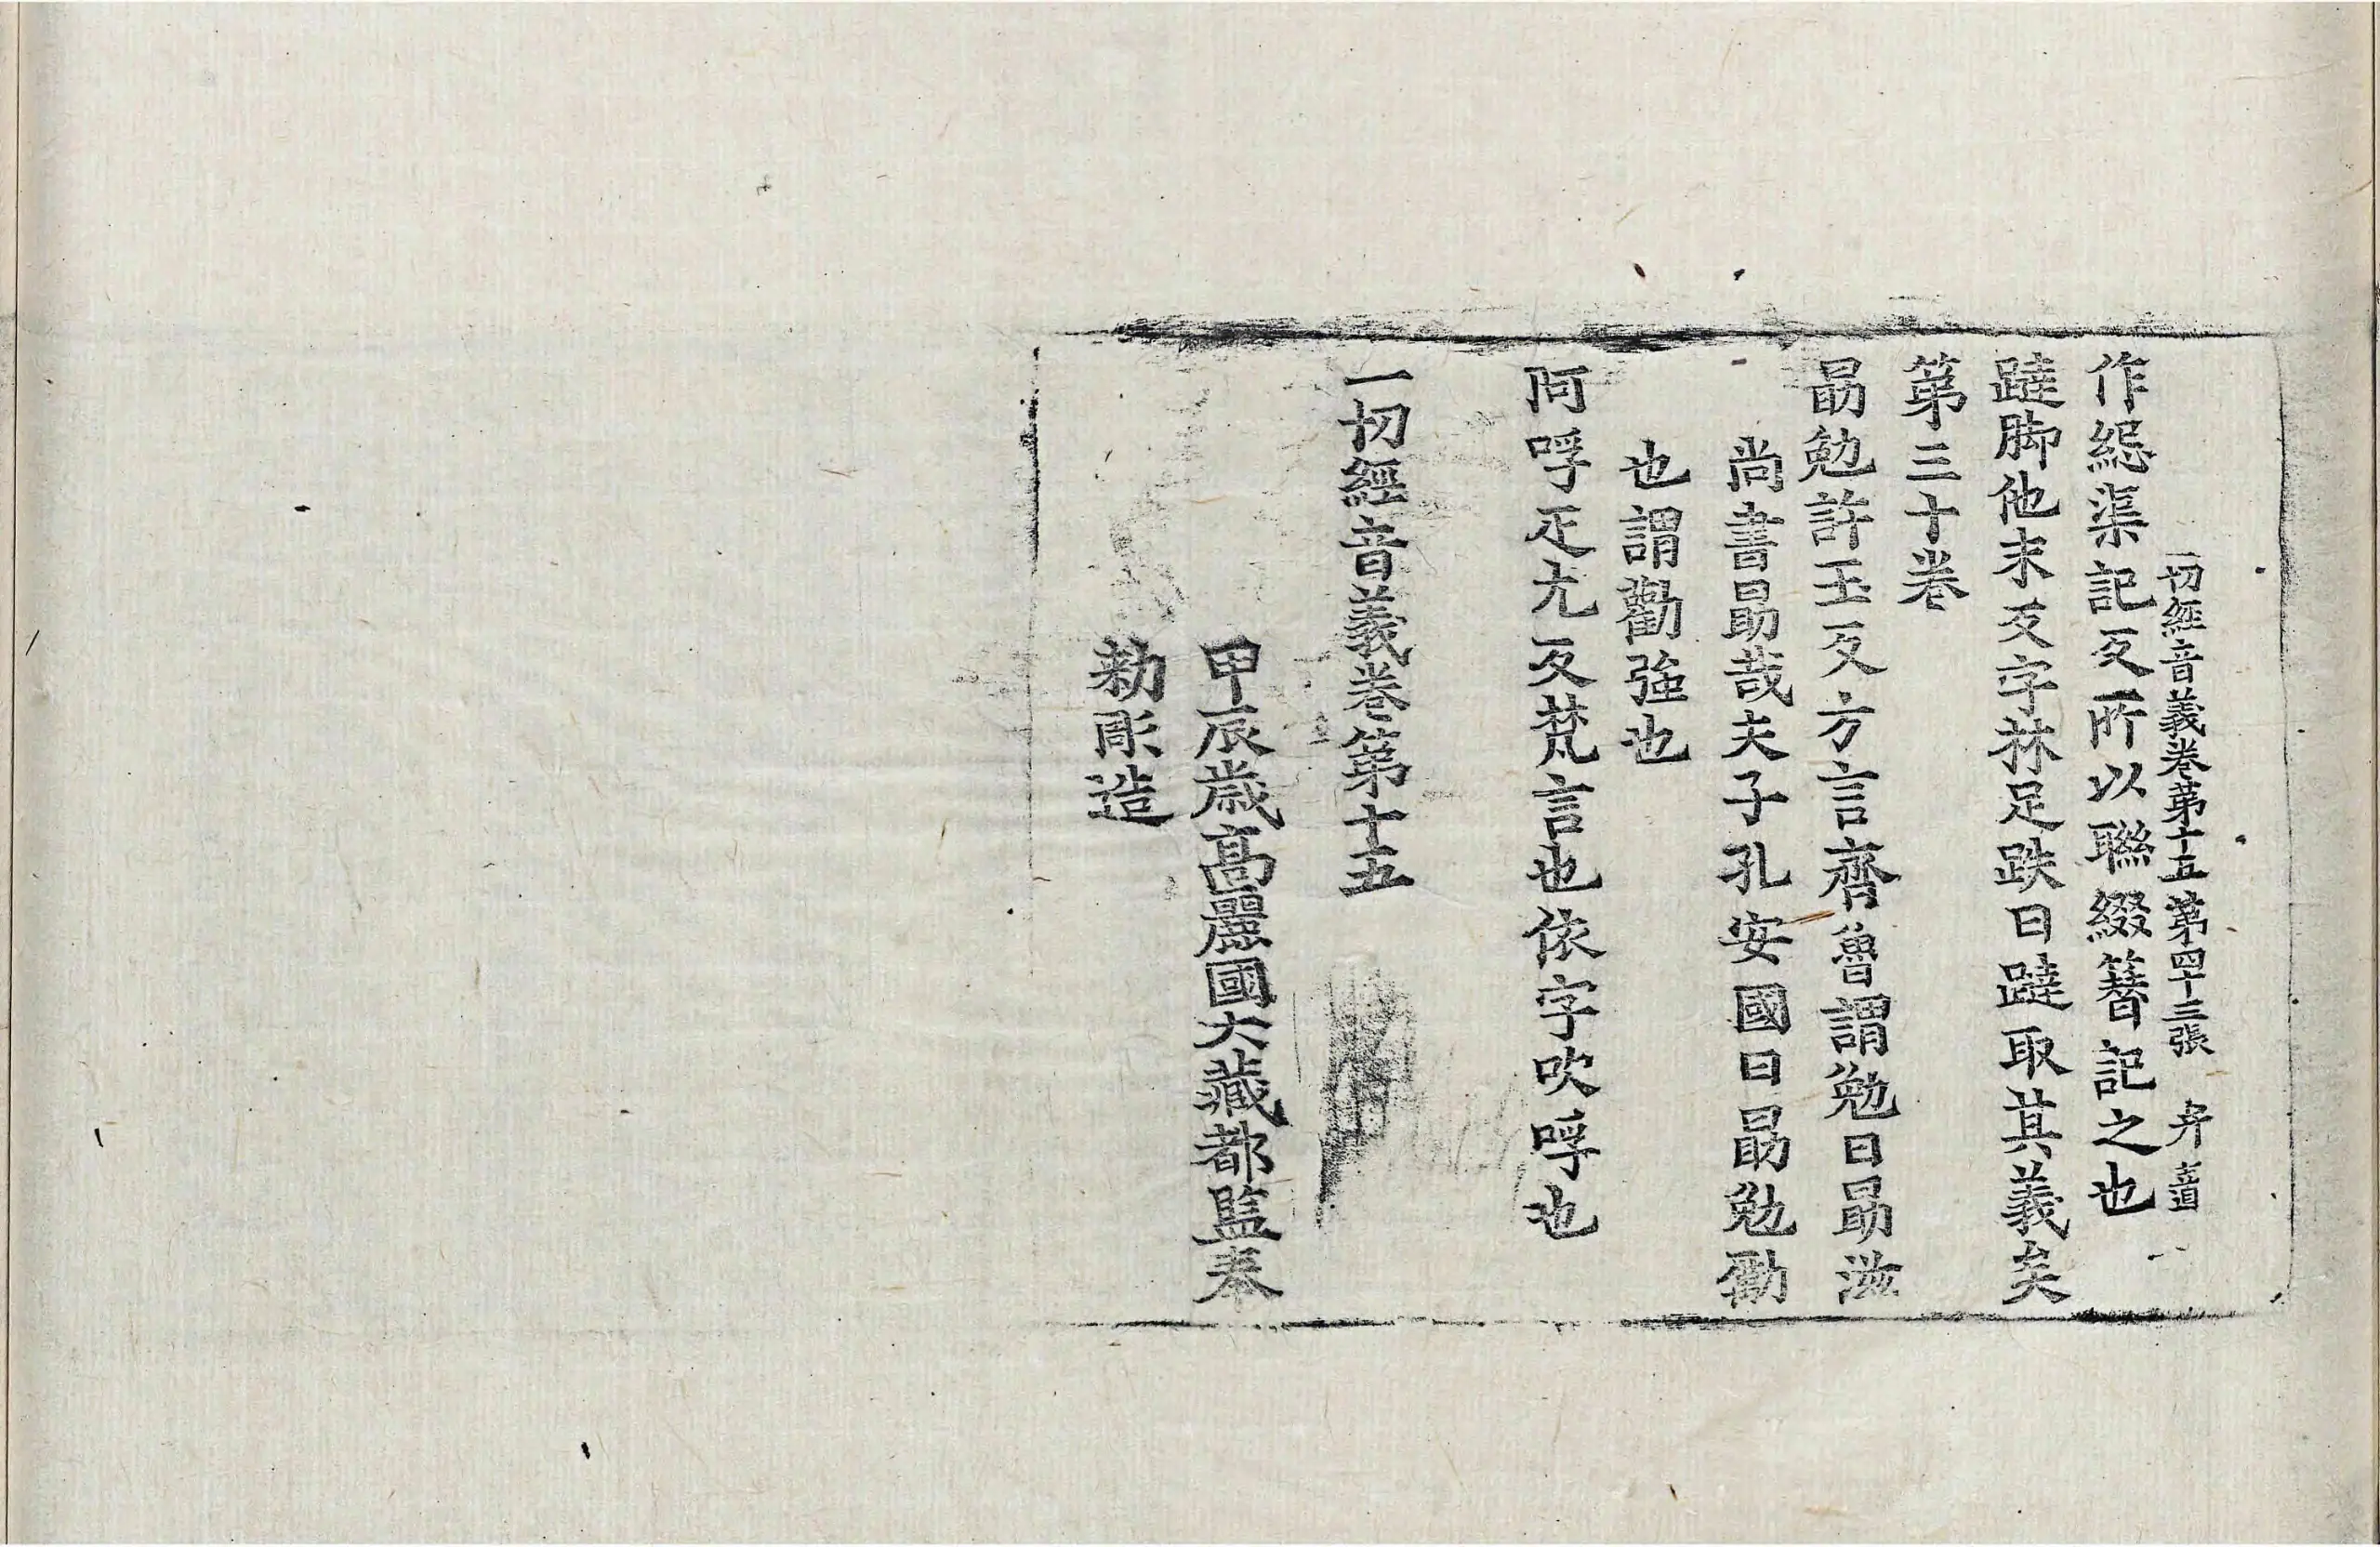 一切經音義卷第十五 第四十三張 弁
作緦渠記反所以聯綴簪記之也
躂脚他末反字林足跌曰躂取其義矣
第三十卷
勗勉許玉反方言齊魯謂勉曰勗滋
尚書勗哉夫子孔安國曰勗勉勵
也謂勸強也
阿哹疋尤反梵言也依字吹哹也
一切經音義卷第十五
甲辰歲高麗國大藏都監奉
勑彫造